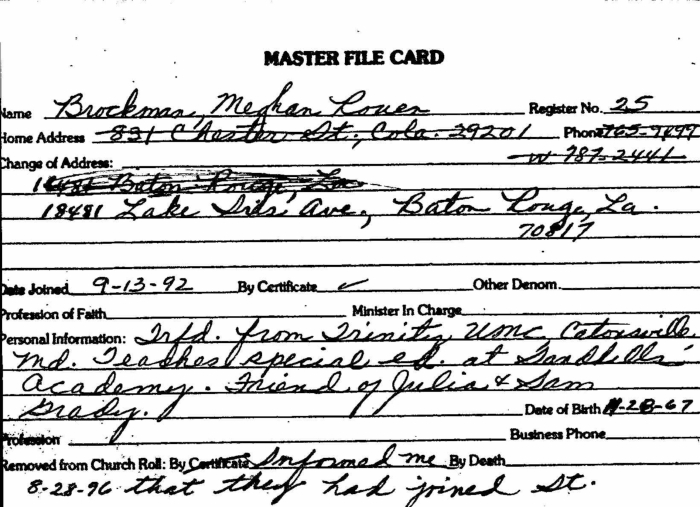 MASTER FILE CARD
Name Brockman, Meghan Rouen Register No. 25
Home Address 831 Chester St., Cola. 29201 Phone 765-9499
Change of Address: w 787-2441
Baton Rouge, La
18481 Lake Iris Ave., Baton Rouge, La.
70817
Date Joined 9-13-92 By Certificate ✓ Other Denom.
Profession of Faith Minister In Charge
Personal Information: Trfd. from Trinity UMC, Catonsville,
Md. Teaches special ed. at Sandhills
Academy. Friend of Julia & Sam
Grady. Date of Birth 11-28-67
Profession Business Phone
Removed from Church Roll: By Certificate Informed me By Death
8-28-96 that they had joined St.